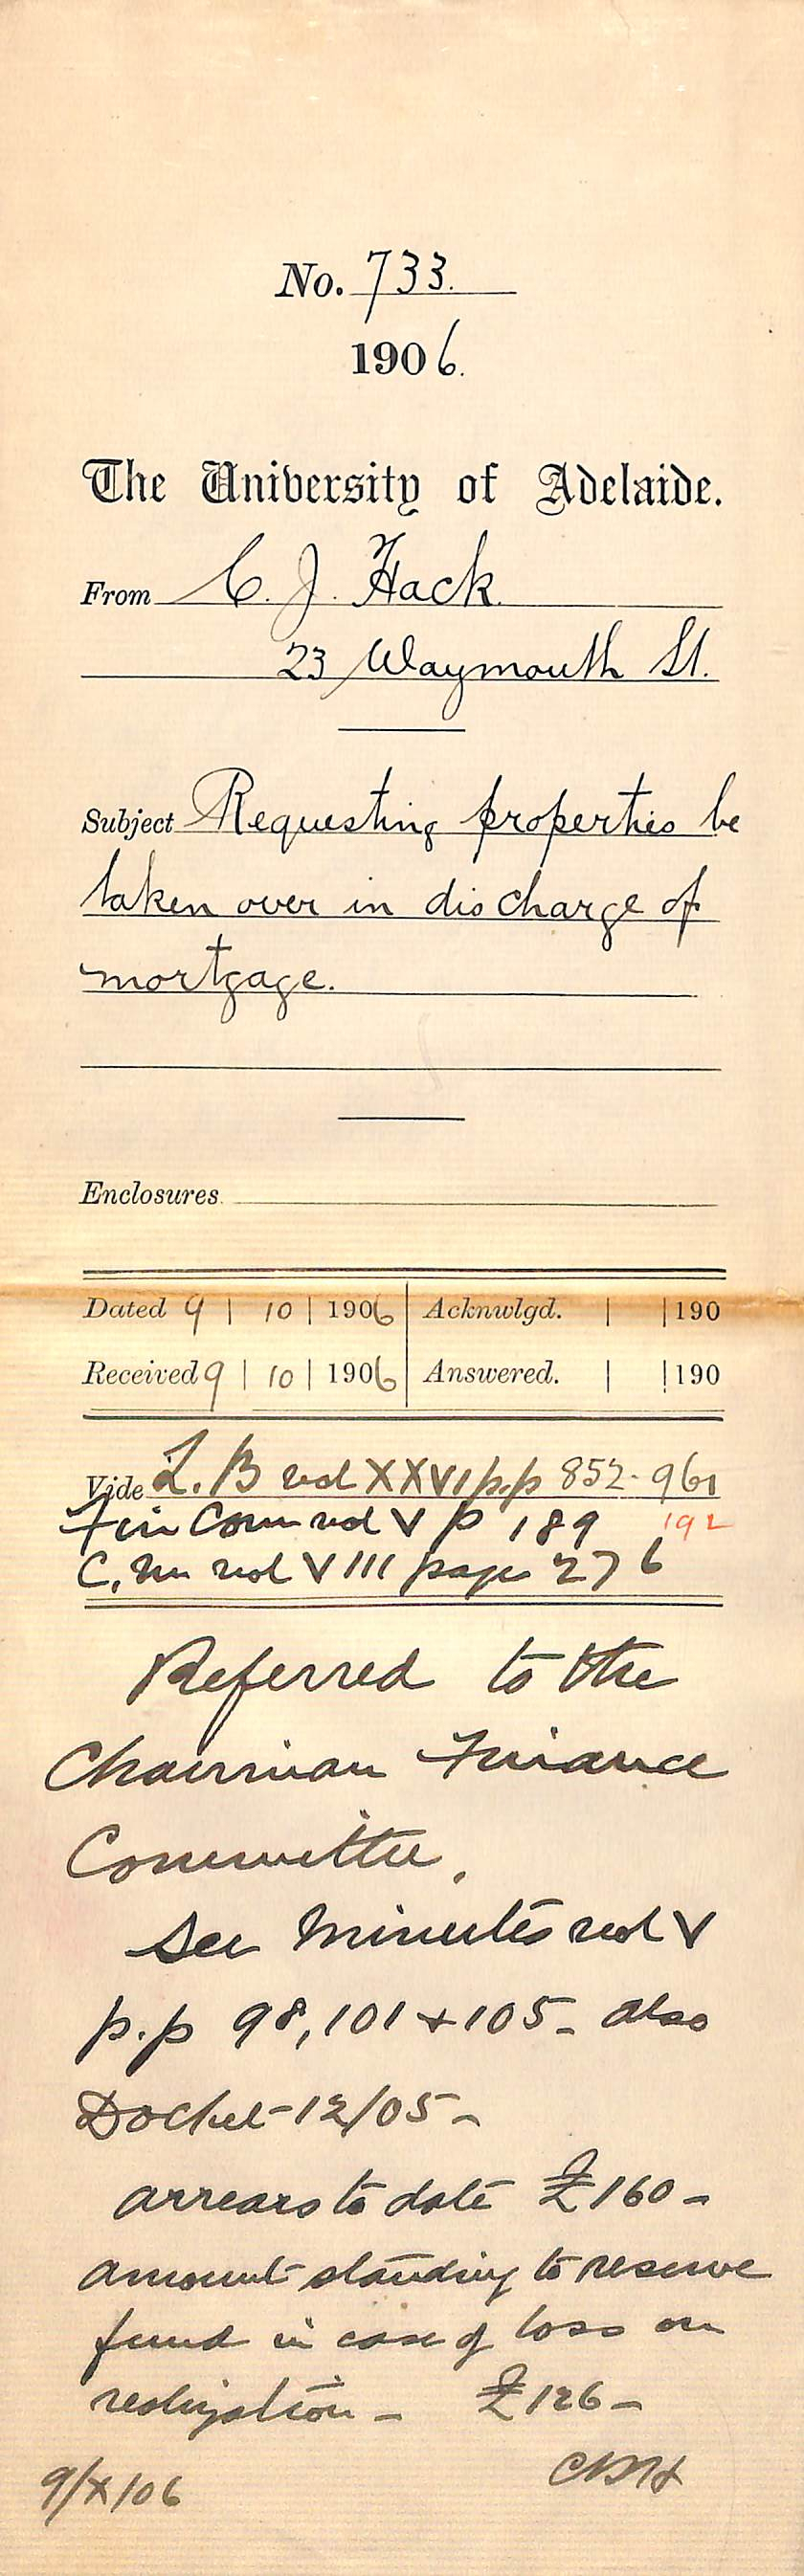 No. 733.
1906.
The University of Adelaide.
From C. J. Hack.
23 Waymouth St.
Subject Requesting properties be
taken over in discharge of
mortgage.
Enclosures
Dated 9 | 10 | 1906 Acknwlgd. | | 190
Received 9 | 10 | 1906 Answered. | | 190
Vide L. B vol XXVI p.p 852. 961
Fin Com vol V p 189 192
C. M vol VIII page 276
Referred to the
Chairman Finance
Committee.
See Minutes vol V
p.p 98, 101 + 105 - also
Docket - 12/05 -
arrears to date £160 -
amount standing to reserve
fund in case of loss on
realization - £126 -
9/X/06